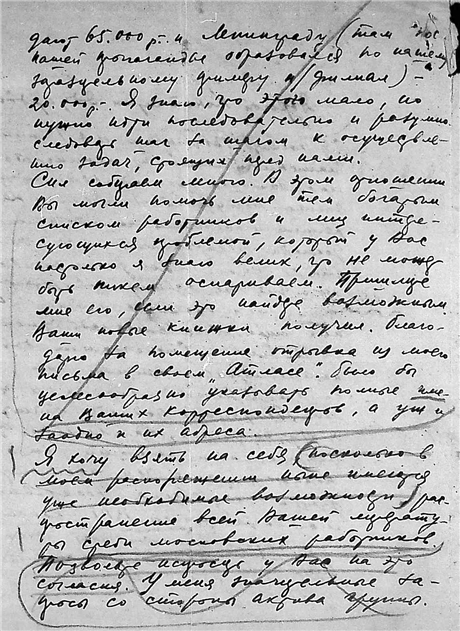 дают 65.000 р. и Ленинграду (там пос-
нашей пропаганде образовался по нашему
заразительному примеру и филиал) –
20.000 р. Я знаю, что этого мало, но
нужно идти последовательно и разумно
следовать шаг за шагом к осуществле-
нию задач, стоящих пред нами.
Сил собираем много. В этом отношении
Вы могли помочь мне тем богатым
списком работников и лиц интере-
сующихся проблемой, который у Вас
насколько я знаю велик, что не может
быть никем оспариваем. Пришлите
мне его, если это найдете возможным
Ваши новые книжки получил. Благо-
дарю за помещение отрывка из моего
письма в своем „Атласе“. Было бы
целесообразно указывать полные име-
на Ваших корреспондентов, а уж и
заодно и их адреса.
Я хочу взять на себя (поскольку в
моем распоряжении ныне имеются
уже необходимые возможности) рас-
пространение всей Вашей литерату-
ры среди московских работников
Позвольте испросить у Вас на это
согласия. У меня значительные за-
просы со стороны актива группы.